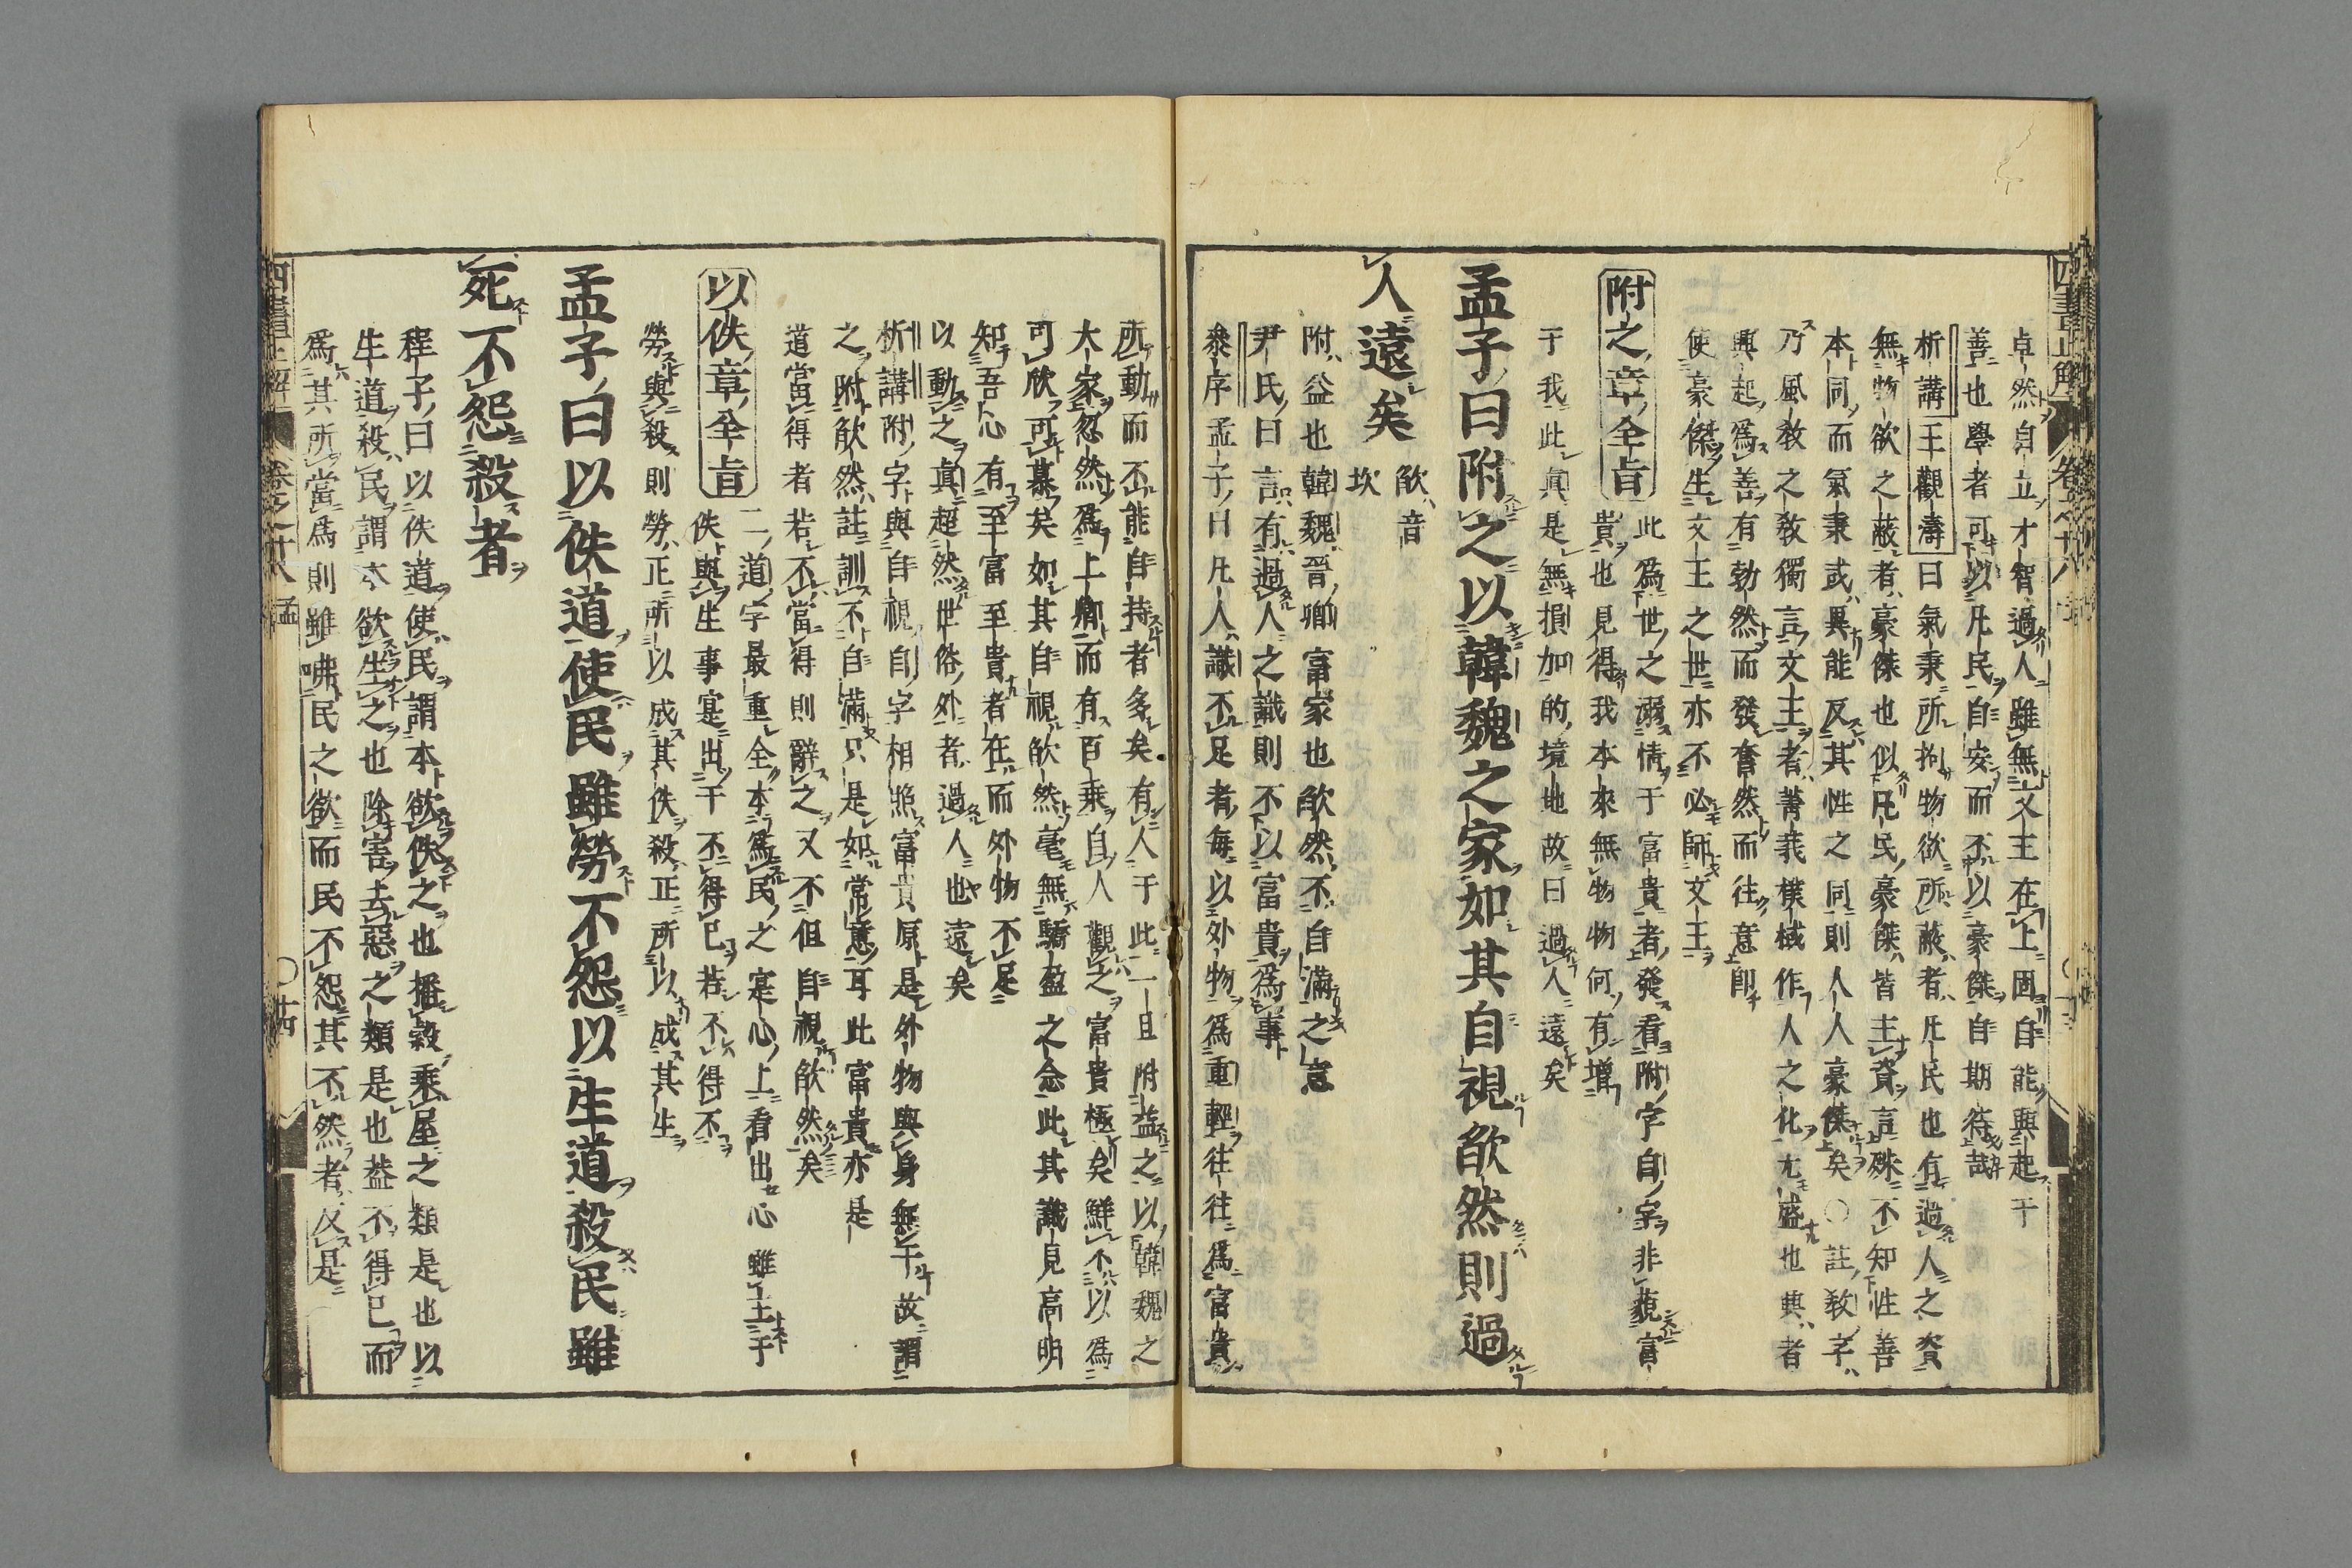 卓然自立才智過人雖無文王在上固自能興起于
善也學者可以凡民自安而不以豪傑自期待哉
析講王觀濤曰氣秉所拘物欲所蔽者凡民也有過人之資
無物欲之蔽者豪傑也似凡民豪傑皆主資言殊不知性善
本同而氣秉或異能反其性之同則人人豪傑矣○註教字
乃風教之教獨言文王者菁莪棫樸作人之化尤盛也興者
興起爲善有勃然而發奮然而往意卽
使豪傑生文王之世亦不必師文王
附之章全旨
此爲世之溺情于富貴者發看附字自字非藐富
貴也見得我本來無物物何有增
于我此眞是無損加的境地故曰過人遠矣
孟子曰附之以韓魏之家如其自視欿然則過
人遠矣
欿音
坎
附益也韓魏晉卿富家也欿然不自滿之意
尹氏曰言有過人之識則不以富貴爲事
叅序孟子曰凡人識不足者每以外物爲重輕往往爲富貴
所動而不能自持者多矣有人于此一旦附益之以韓魏之
大家忽然爲上卿而有百乘自人觀之富貴極矣鮮不以爲
可欣可慕矣如其自視欿然毫無驕盈之念此其識見高明
知吾心有至富至貴者在而外物不足
以動之眞超然世俗外者過人也遠矣
析講附字與自視自字相照富貴原是外物與身無干故謂
之附欿然註訓不自滿只是如常意耳此富貴亦是
道當得者若不當得則辭之又不但自視欿然矣
以佚章全旨
二道字最重全本爲民之寔心上看出心雖主于
佚與生事寔出于不得已若不得不
勞與殺則勞正所以成其佚殺正所以成其生
孟子曰以佚道使民雖勞不怨以生道殺民雖
死不怨殺者
程子曰以佚道使民謂本欲佚之也播穀乘屋之類是也以
生道殺民謂本欲生之也除害去惡之類是也蓋不得已而
爲其所當爲則雖咈民之欲而民不怨其不然者反是
四書正解
卷之十八
孟
〇十四